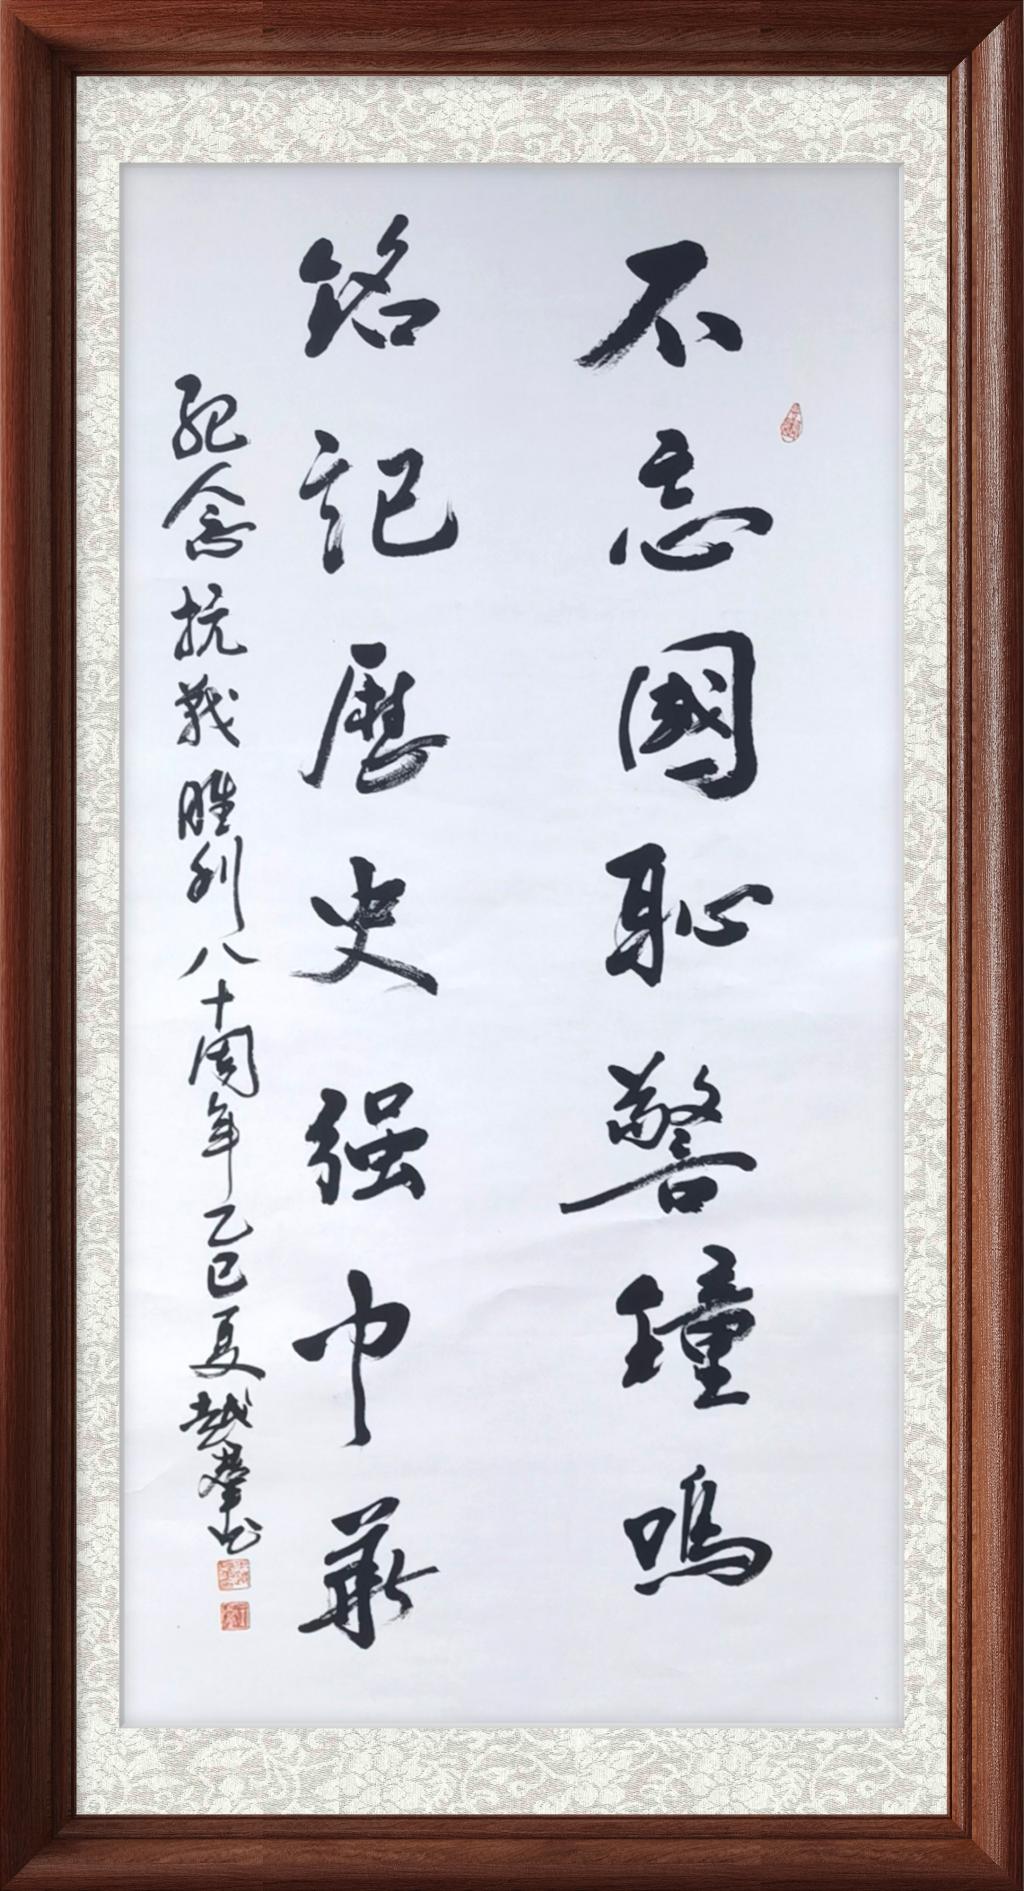 不忘國恥警鐘鳴
銘記歷史强中華
紀念抗战胜利八十周年乙巳夏越犖书